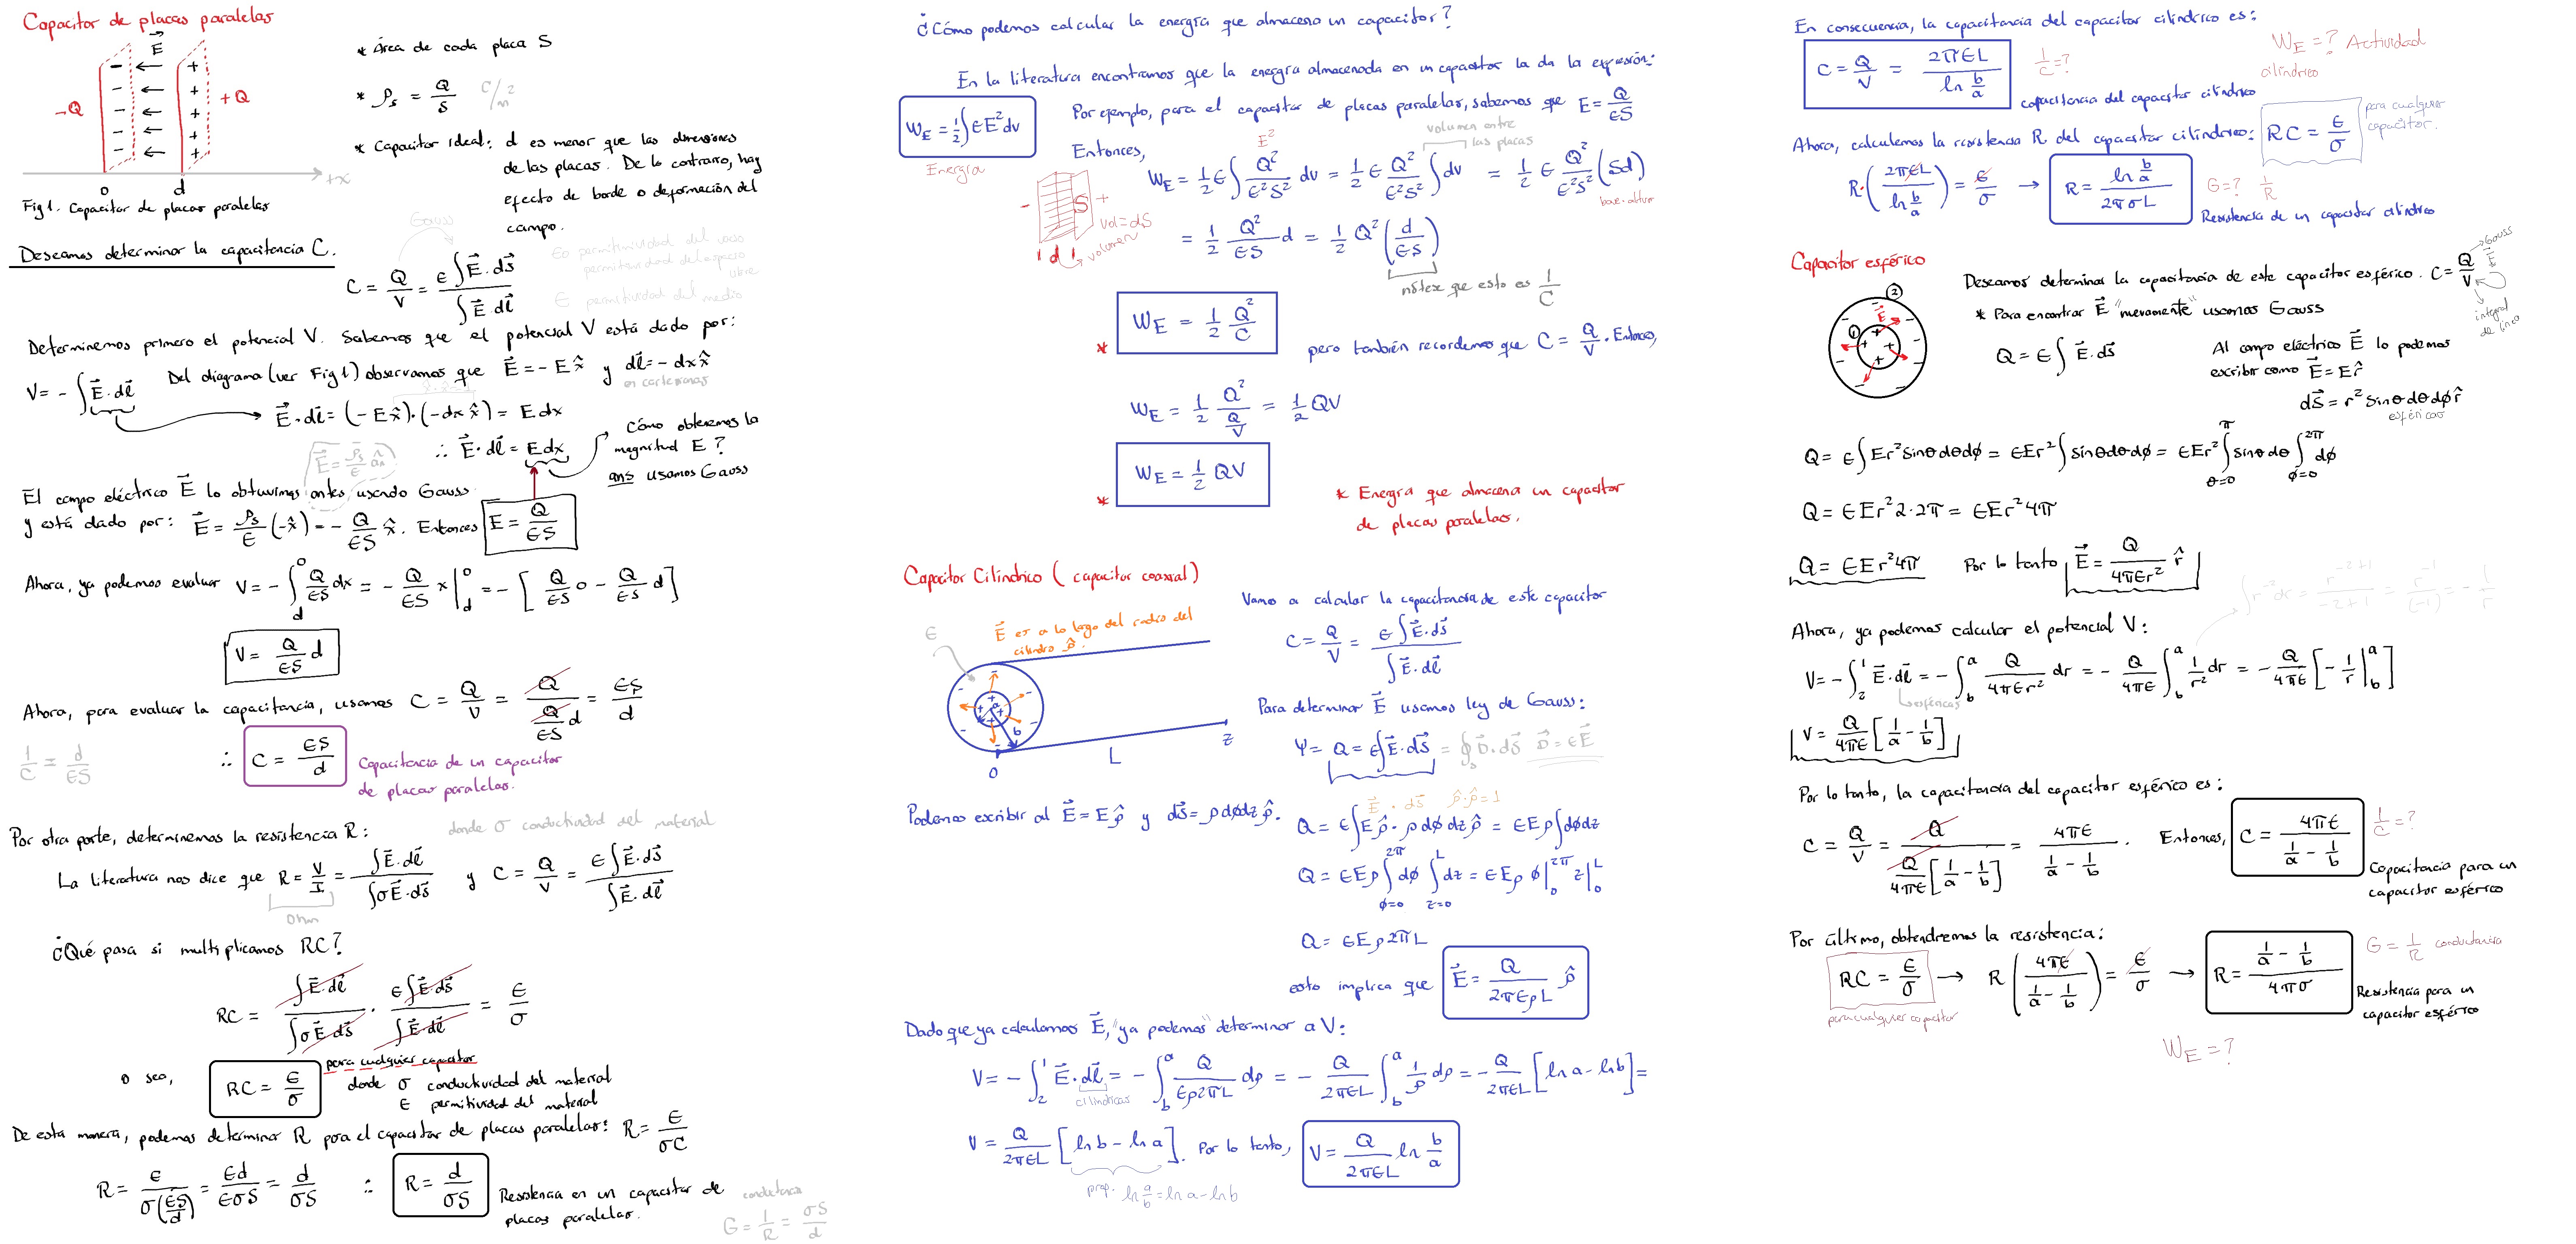 Capacitor de placas paralelas
E⃗
-Q
+Q
0
d
+x
Fig 1. Capacitor de placas paralelas
* Área de cada placa S
* ρs = Q/S C/m²
* Capacitor ideal: d es menor que las dimensiones
de las placas. De lo contrario, hay
efecto de borde o deformación del
campo.
Deseamos determinar la capacitancia C.
Gauss
C = Q/V = ε∫E⃗·ds⃗ / ∫E⃗·dl⃗
εo permitividad del vacío
permitividad del espacio
libre
ε permitividad del medio
Determinemos primero el potencial V. Sabemos que el potencial V está dado por:
V = - ∫E⃗·dl⃗ Del diagrama (ver Fig 1) observamos que E⃗ = - E x̂ y dl⃗ = - dx x̂
en cartesianas
E⃗·dl⃗ = (-E x̂)·(-dx x̂) = E dx
∴ E⃗·dl⃗ = E dx
Cómo obtenemos la
magnitud E?
ans usamos Gauss
E⃗ = ρs/ε ân
El campo eléctrico E⃗ lo obtuvimos antes usando Gauss
y está dado por: E⃗ = ρs/ε (-x̂) = - Q/εS x̂. Entonces E = Q/εS
Ahora, ya podemos evaluar V = - ∫_d^0 Q/εS dx = - Q/εS x |_d^0 = - [Q/εS 0 - Q/εS d]
V = Q/εS d
Ahora, para evaluar la capacitancia, usamos C = Q/V = Q/(Q/εS d) = εS/d
1/C = d/εS
∴ C = εS/d Capacitancia de un capacitor
de placas paralelas.
Por otra parte, determinemos la resistencia R:
donde σ conductividad del material
La literatura nos dice que R = V/I = ∫E⃗·dl⃗ / ∫σE⃗·ds⃗ y C = Q/V = ε∫E⃗·ds⃗ / ∫E⃗·dl⃗
Ohm
¿Qué pasa si multiplicamos RC?
RC = ∫E⃗·dl⃗ / ∫σE⃗·ds⃗ · ε∫E⃗·ds⃗ / ∫E⃗·dl⃗ = ε/σ
o sea, RC = ε/σ
para cualquier capacitor
donde σ conductividad del material
ε permitividad del material
De esta manera, podemos determinar R para el capacitor de placas paralelas: R = ε/σC
R = ε/σ(εS/d) = εd/εσS = d/σS ∴ R = d/σS
Resistencia en un capacitor de
placas paralelas.
conductancia
G = 1/R = σS/d
¿Cómo podemos calcular la energía que almacena un capacitor?
En la literatura encontramos que la energía almacenada en un capacitor la da la expresión:
W_E = 1/2 ∫εE² dv
Energía
Por ejemplo, para el capacitor de placas paralelas, sabemos que E = Q/εS
Entonces,
E²
volumen entre
las placas
W_E = 1/2 ε∫ Q²/ε²S² dv = 1/2 ε Q²/ε²S² ∫dv = 1/2 ε Q²/ε²S² (Sd)
base·altura
- S +
vol = dS
d
volumen
= 1/2 Q²/εS d = 1/2 Q² (d/εS)
nótese que esto es 1/C
* W_E = 1/2 Q²/C
pero también recordemos que C = Q/V. Entonces,
W_E = 1/2 Q²/(Q/V) = 1/2 QV
* W_E = 1/2 QV
* Energía que almacena un capacitor
de placas paralelas.
Capacitor Cilíndrico (capacitor coaxial)
ε
E⃗ es a lo largo del radio del
cilindro ρ̂.
a
b
0
L
z
Vamos a calcular la capacitancia de este capacitor
C = Q/V = ε∫E⃗·ds⃗ / ∫E⃗·dl⃗
Para determinar E⃗ usamos ley de Gauss:
Ψ = Q = ε∮E⃗·ds⃗ = ∮_s D⃗·ds⃗ D⃗ = εE⃗
Podemos escribir al E⃗ = E ρ̂ y ds⃗ = ρ dϕ dz ρ̂.
E⃗ · ds⃗ ρ̂·ρ̂ = 1
Q = ε∫E ρ̂ · ρ dϕ dz ρ̂ = εEρ∫dϕ dz
Q = εEρ ∫_{ϕ=0}^{2π} dϕ ∫_{z=0}^{L} dz = εEρ ϕ|_0^{2π} z|_0^L
Q = εEρ2πL
esto implica que E⃗ = Q/2περL ρ̂
Dado que ya calculamos E⃗, "ya podemos" determinar a V:
V = - ∫_2^1 E⃗·dl⃗ = - ∫_b^a Q/ερ2πL dρ = - Q/2πεL ∫_b^a 1/ρ dρ = - Q/2πεL [ln a - ln b] =
cilíndricas
V = Q/2πεL [ln b - ln a]. Por lo tanto, V = Q/2πεL ln b/a
prop. ln a/b = ln a - ln b
En consecuencia, la capacitancia del capacitor cilíndrico es:
C = Q/V = 2πεL / ln b/a
1/C = ?
W_E = ? Actividad
cilíndrico
capacitancia del capacitor cilíndrico
Ahora, calculemos la resistencia R del capacitor cilíndrico: RC = ε/σ
para cualquier
capacitor.
R·(2πεL / ln b/a) = ε/σ → R = ln b/a / 2πσL
G = ? 1/R
Resistencia de un capacitor cilíndrico
Capacitor esférico
Deseamos determinar la capacitancia de este capacitor esférico. C = Q/V
Gauss
E⃗
integral
de línea
* Para encontrar E⃗ "nuevamente" usamos Gauss
②
①
E⃗
Q = ε∫E⃗·ds⃗
Al campo eléctrico E⃗ lo podemos
escribir como E⃗ = E r̂
ds⃗ = r² sinθ dθ dϕ r̂
esféricas
Q = ε∫Er² sinθ dθ dϕ = εEr²∫sinθ dθ dϕ = εEr² ∫_{θ=0}^{π} sinθ dθ ∫_{ϕ=0}^{2π} dϕ
Q = εEr² 2·2π = εEr² 4π
Q = εEr² 4π Por lo tanto E⃗ = Q/4πεr² r̂
∫r⁻² dr = r⁻²⁺¹/-2+1 = r⁻¹/(-1) = - 1/r
Ahora, ya podemos calcular el potencial V:
V = - ∫_2^1 E⃗·dl⃗ = - ∫_b^a Q/4πεr² dr = - Q/4πε ∫_b^a 1/r² dr = - Q/4πε [- 1/r |_b^a]
esféricas
V = Q/4πε [1/a - 1/b]
Por lo tanto, la capacitancia del capacitor esférico es:
C = Q/V = Q / (Q/4πε [1/a - 1/b]) = 4πε / (1/a - 1/b). Entonces, C = 4πε / (1/a - 1/b)
1/C = ?
Capacitancia para un
capacitor esférico
Por último, obtendremos la resistencia:
RC = ε/σ → R (4πε / (1/a - 1/b)) = ε/σ → R = (1/a - 1/b) / 4πσ
para cualquier capacitor
G = 1/R conductancia
Resistencia para un
capacitor esférico
W_E = ?